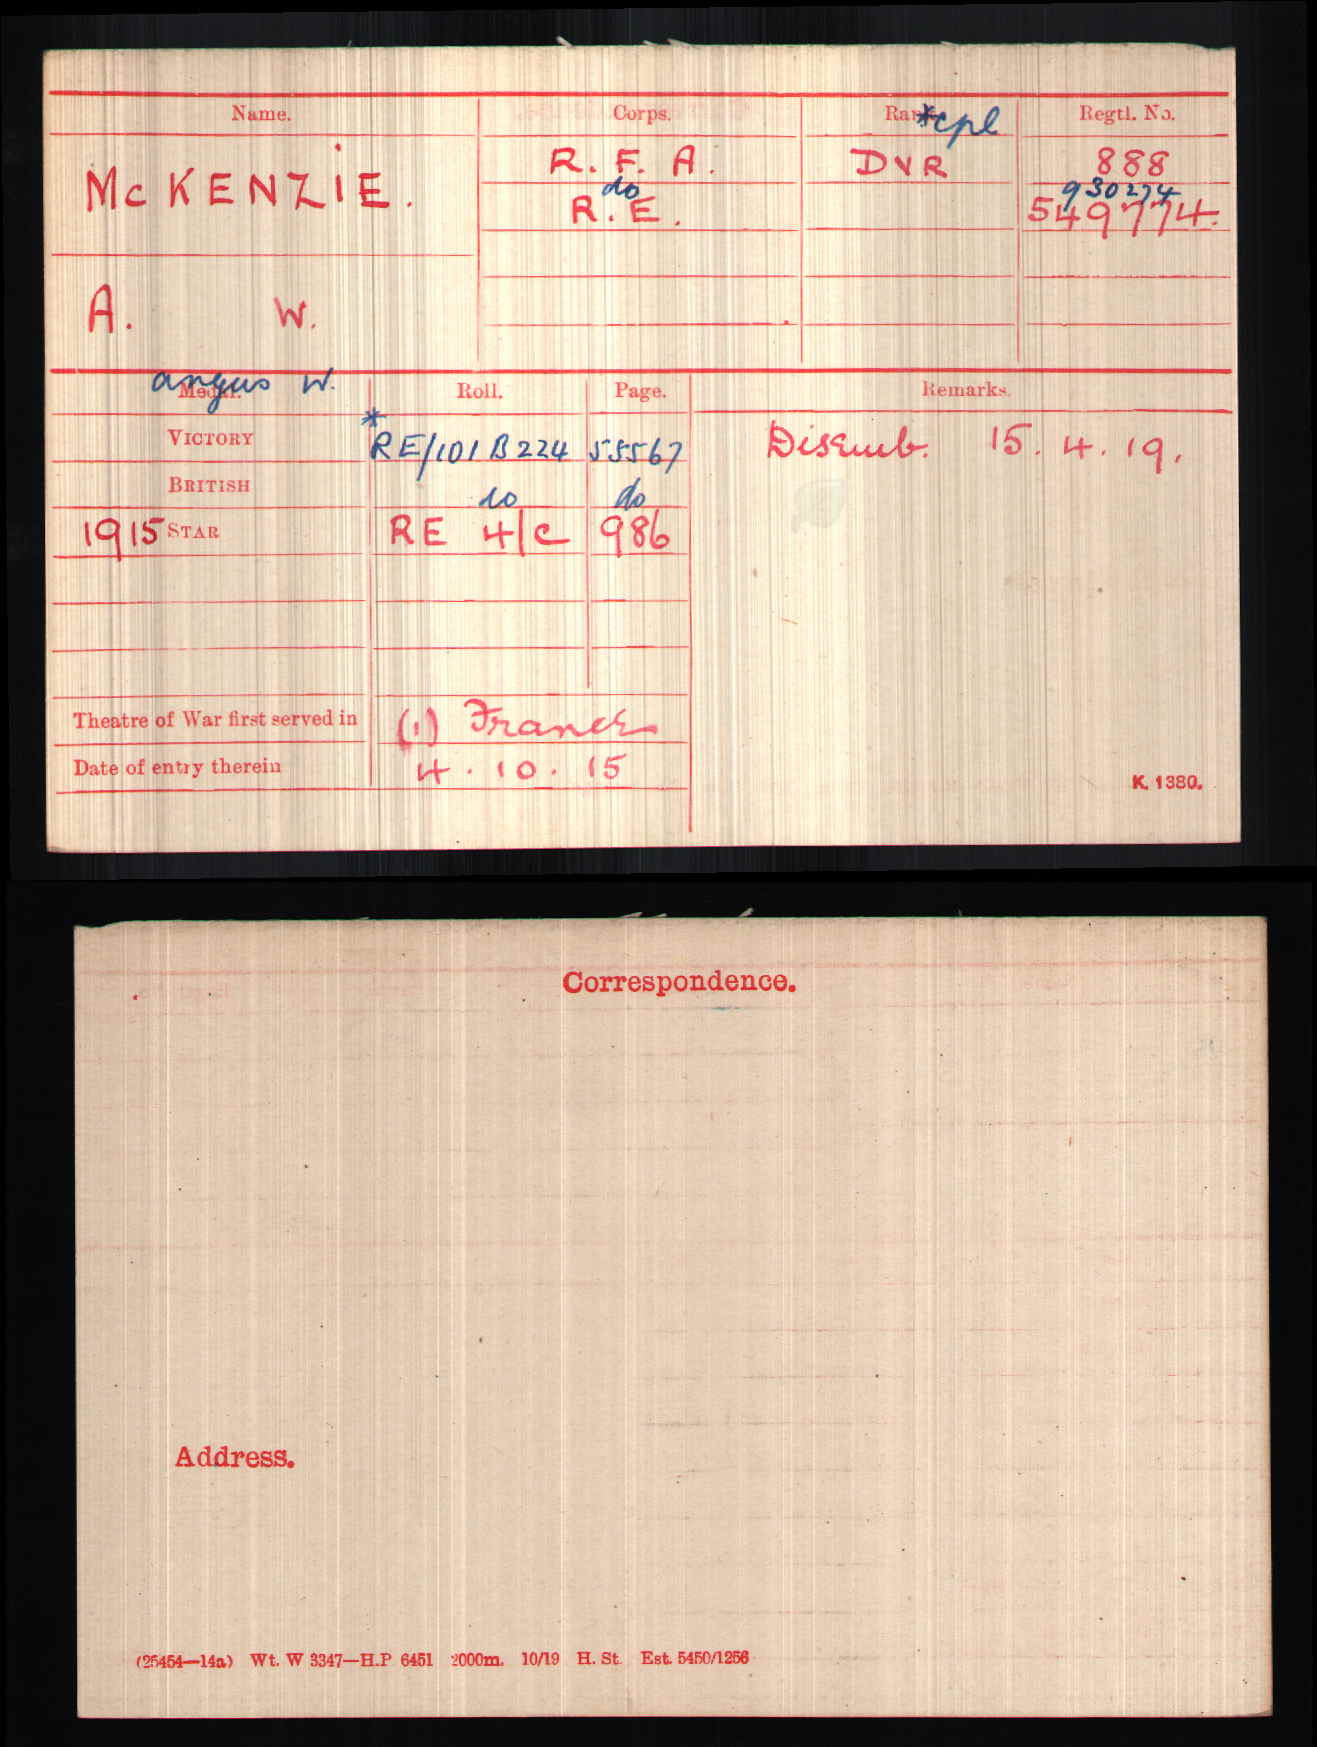 Name. Corps. Rank. *cpl Regtl. No.
McKENZIE. R. F. A. DVR 888
do 930274
R. E. 549774.
A. W.
angus W.
Medal. Roll. Page. Remarks.
VICTORY *RE/101 B224 55567 Disemb. 15. 4. 19.
BRITISH do do
1915 STAR RE 4/C 986
Theatre of War first served in (1) France
Date of entry therein 4. 10. 15
K. 1380.
Correspondence.
Address.
(25454—14a) Wt. W 3347—H.P 6451 2000m. 10/19 H. St. Est. 5450/1256